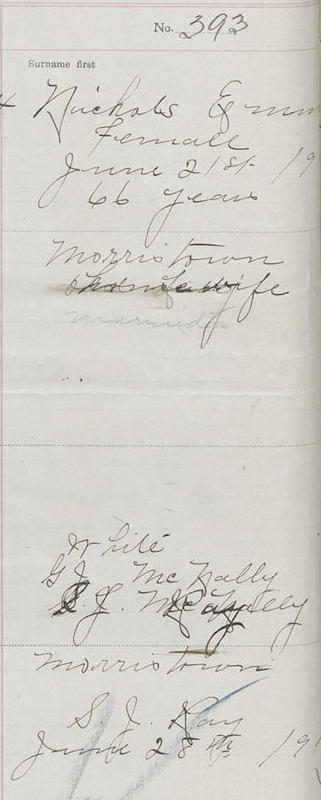 No. 393
Surname first
Nichols Emm
Female
June 21st 19
66 years
Morristown
wife
Married
White
G J. McNally
S. J.
Morristown
S. J. Kay
June 28th 191